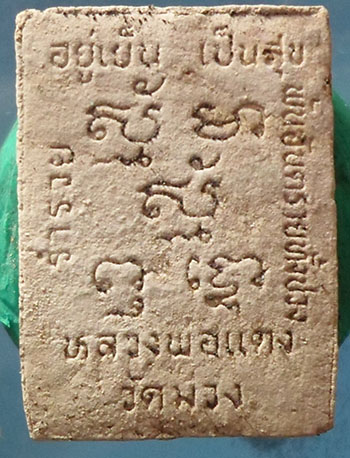 อยู่เย็น เป็นสุข
ร่ำรวย
พ้นอันตรายทั้งปวง
หลวงพอแทง
วัดมวง